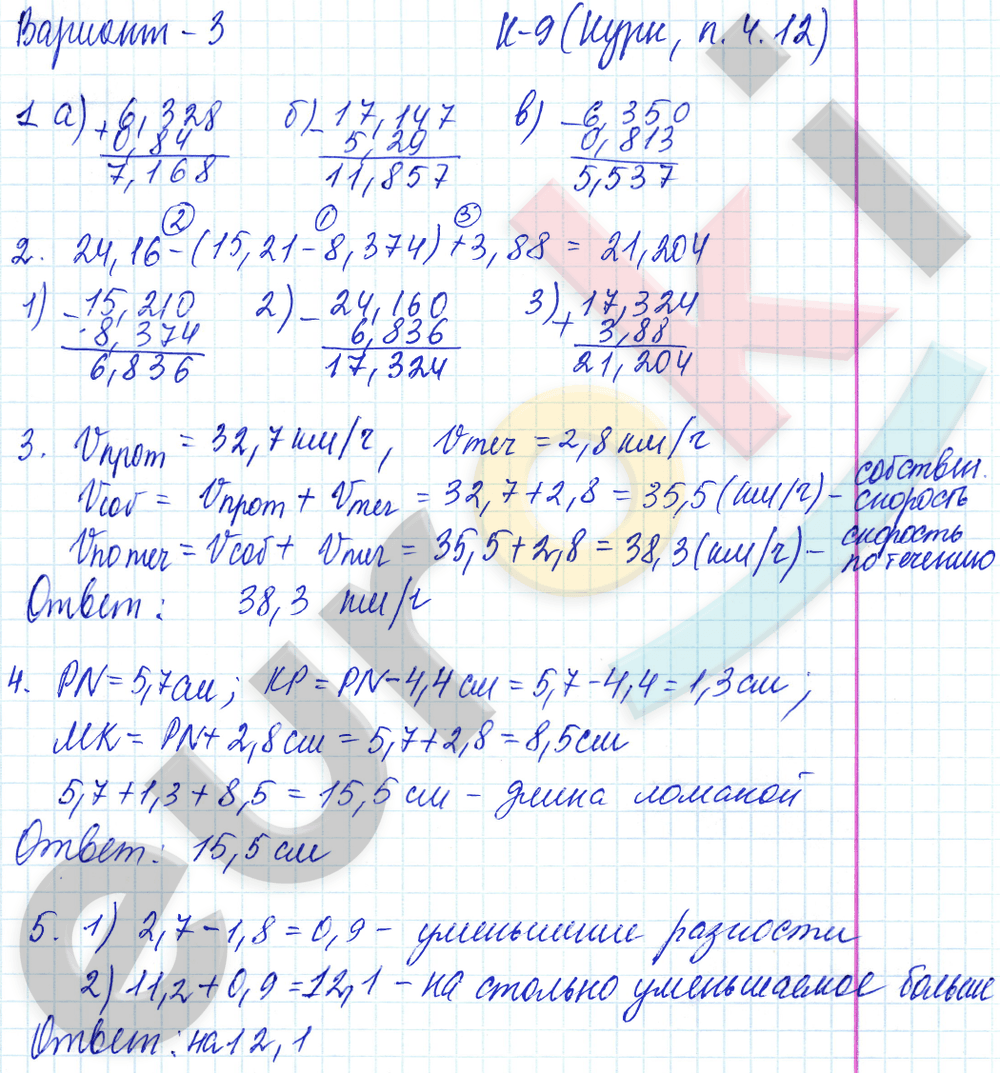 Вариант - 3 К-9 (Нурк, п. 4.12)
1 а) + 6,328 б) - 17,147 в) - 6,350
0,84 5,29 0,813
7,168 11,857 5,537
② ① ③
2. 24,16 - (15,21 - 8,374) + 3,88 = 21,204
1) - 15,210 2) - 24,160 3) + 17,324
8,374 6,836 3,88
6,836 17,324 21,204
3. Vпрот = 32,7 км/ч, Vтеч = 2,8 км/ч
Vсоб = Vпрот + Vтеч = 32,7 + 2,8 = 35,5 (км/ч) - собствен. скорость
Vпо теч = Vсоб + Vтеч = 35,5 + 2,8 = 38,3 (км/ч) - скорость по течению
Ответ: 38,3 км/ч
4. PN = 5,7 см; KP = PN - 4,4 см = 5,7 - 4,4 = 1,3 см;
MK = PN + 2,8 см = 5,7 + 2,8 = 8,5 см
5,7 + 1,3 + 8,5 = 15,5 см - длина ломаной
Ответ: 15,5 см
5. 1) 2,7 - 1,8 = 0,9 - уменьшение разности
2) 11,2 + 0,9 = 12,1 - на столько уменьшаемое больше
Ответ: на 12,1
euroki